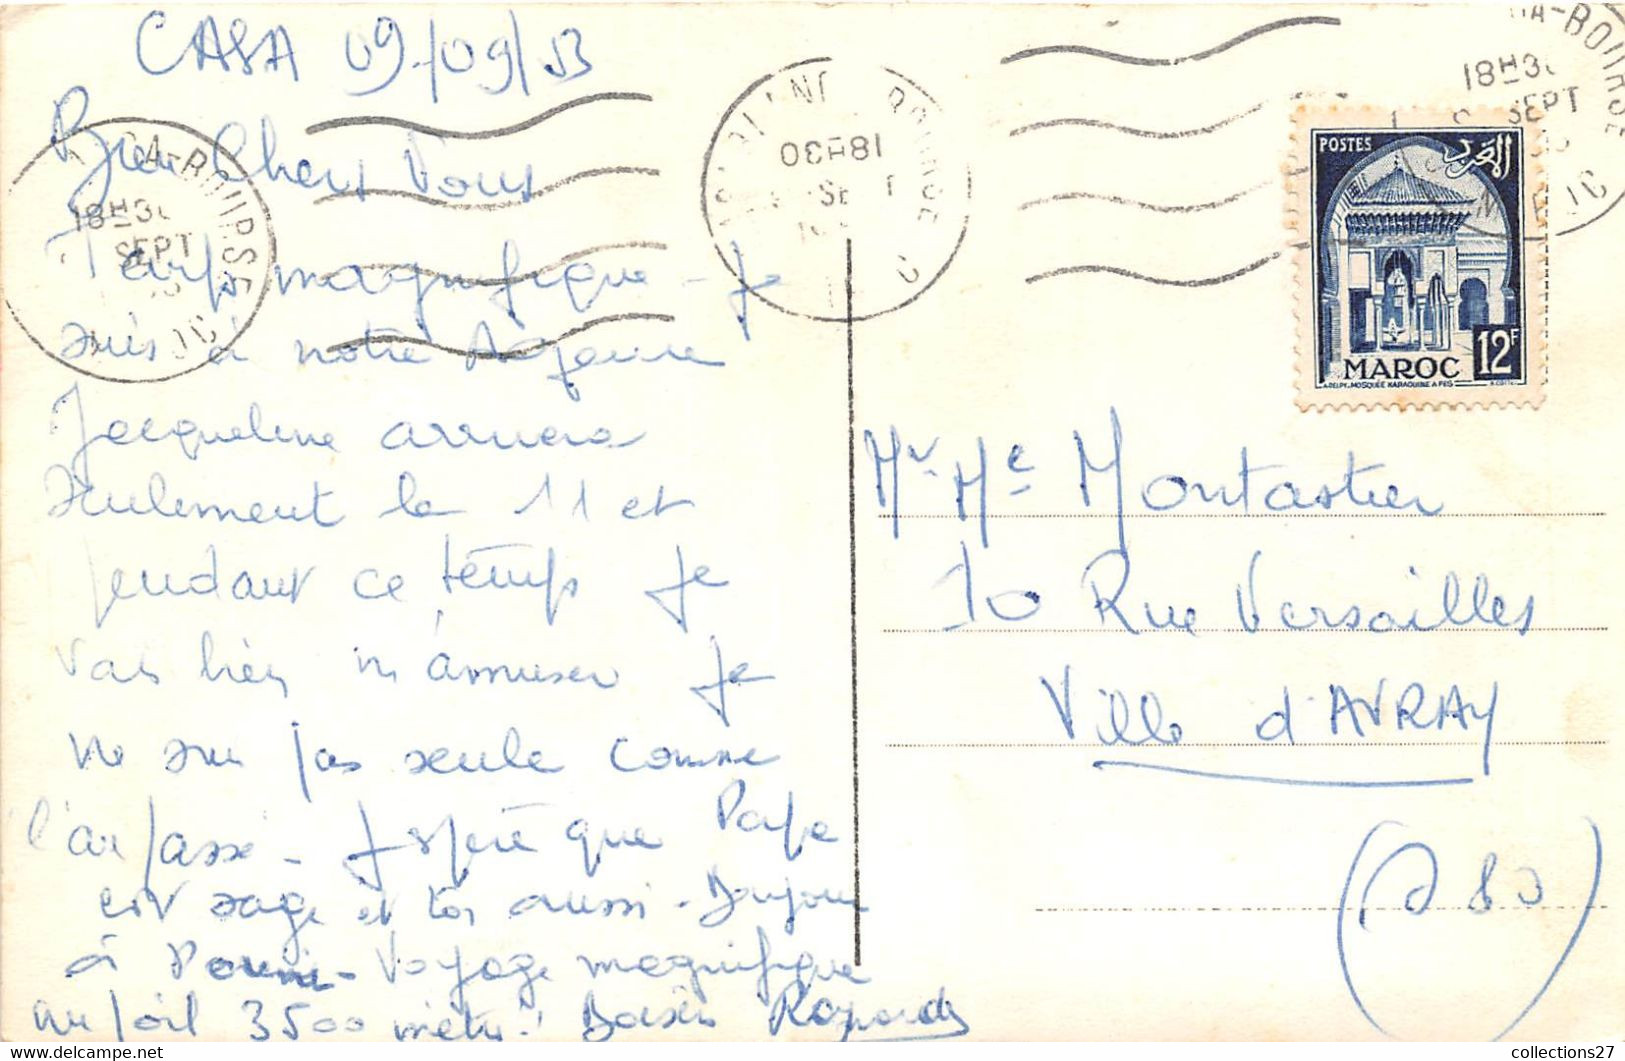 CASA 09/09/53
Bien Chers Vous
Temps magnifique - Je
suis à notre Agence
Jacqueline arrivera
seulement le 11 et
pendant ce temps je
vais bien m'amuser Je
ne suis pas seule comme
l'an passé - J'espère que Papa
est sage et toi aussi - Bonjour
à
Voyage magnifique
au poil 3500 mètres! Baisers
18H30
SEPT
18H30
SEPT
CA-BOURSE
18H30
SEPT
A-BOURSE
POSTES
المغرب
MAROC 12F
A.DELPY_MOSQUÉE KARAOUINE A FES
Mr Me Montastier
10 Rue Versailles
Ville d'AVRAY
(S & O)
collections27